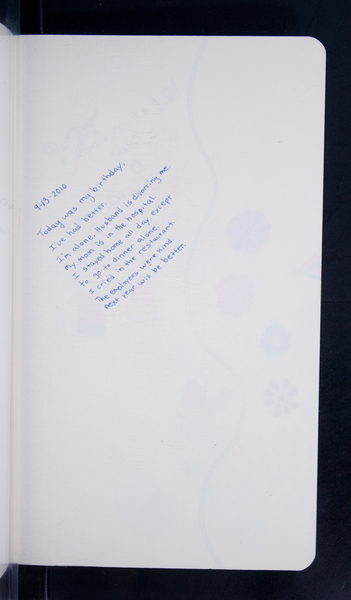 9-13-2010
Today was my birthday.
I've had better.
I'm alone. Husband is divorcing me.
My mom is in the hospital.
I stayed home all day except
to go to dinner alone.
I cried in the restaurant.
The employees were kind.
Next year will be better.